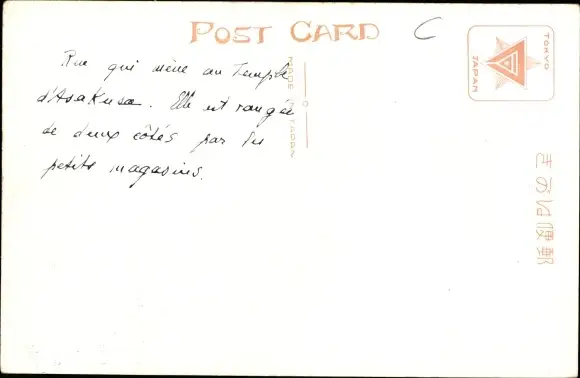 POST CARD
C
TOKYO
JAPAN
Rue qui mène au Temple
d'Asakusa. Elle est rangée
de deux côtés par les
petits magasins.
MADE IN JAPAN
きがは便郵